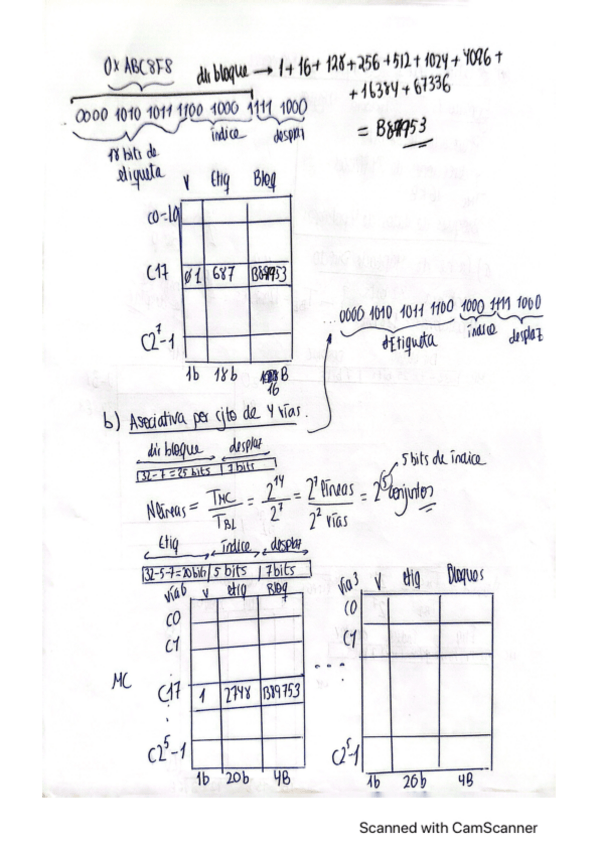 0xABC8F8
dir bloque → 1+16+128+256+512+1024+4096+
+16384+67336
= B89953
0000 1010 1011 1100 1000 1111 1000
índice desplaz
18 bits de
etiqueta
V Etiq Bloq
C0=L0
C17 01 687 B89953
C2^7-1
1b 18b 128B
16
...0000 1010 1011 1100 1000 1111 1000
etiqueta índice desplaz
b) Asociativa por cjto de 4 vías.
dir bloque desplaz
32-7=25 bits 7 bits
5 bits de índice
Nlíneas = T_MC / T_BL = 2^14 / 2^7 = 2^7 líneas / 2^2 vías = 2^5 conjuntos
Etiq índice desplaz
32-5-7=20 bits 5 bits 7 bits
vía 0 V etiq Bloq
vía 3 V etiq Bloques
C0
C0
C1
C1
....
MC C17 1 2748 B89753
C2^5-1
C2^5-1
1b 20b 4B
1b 20b 4B
Scanned with CamScanner